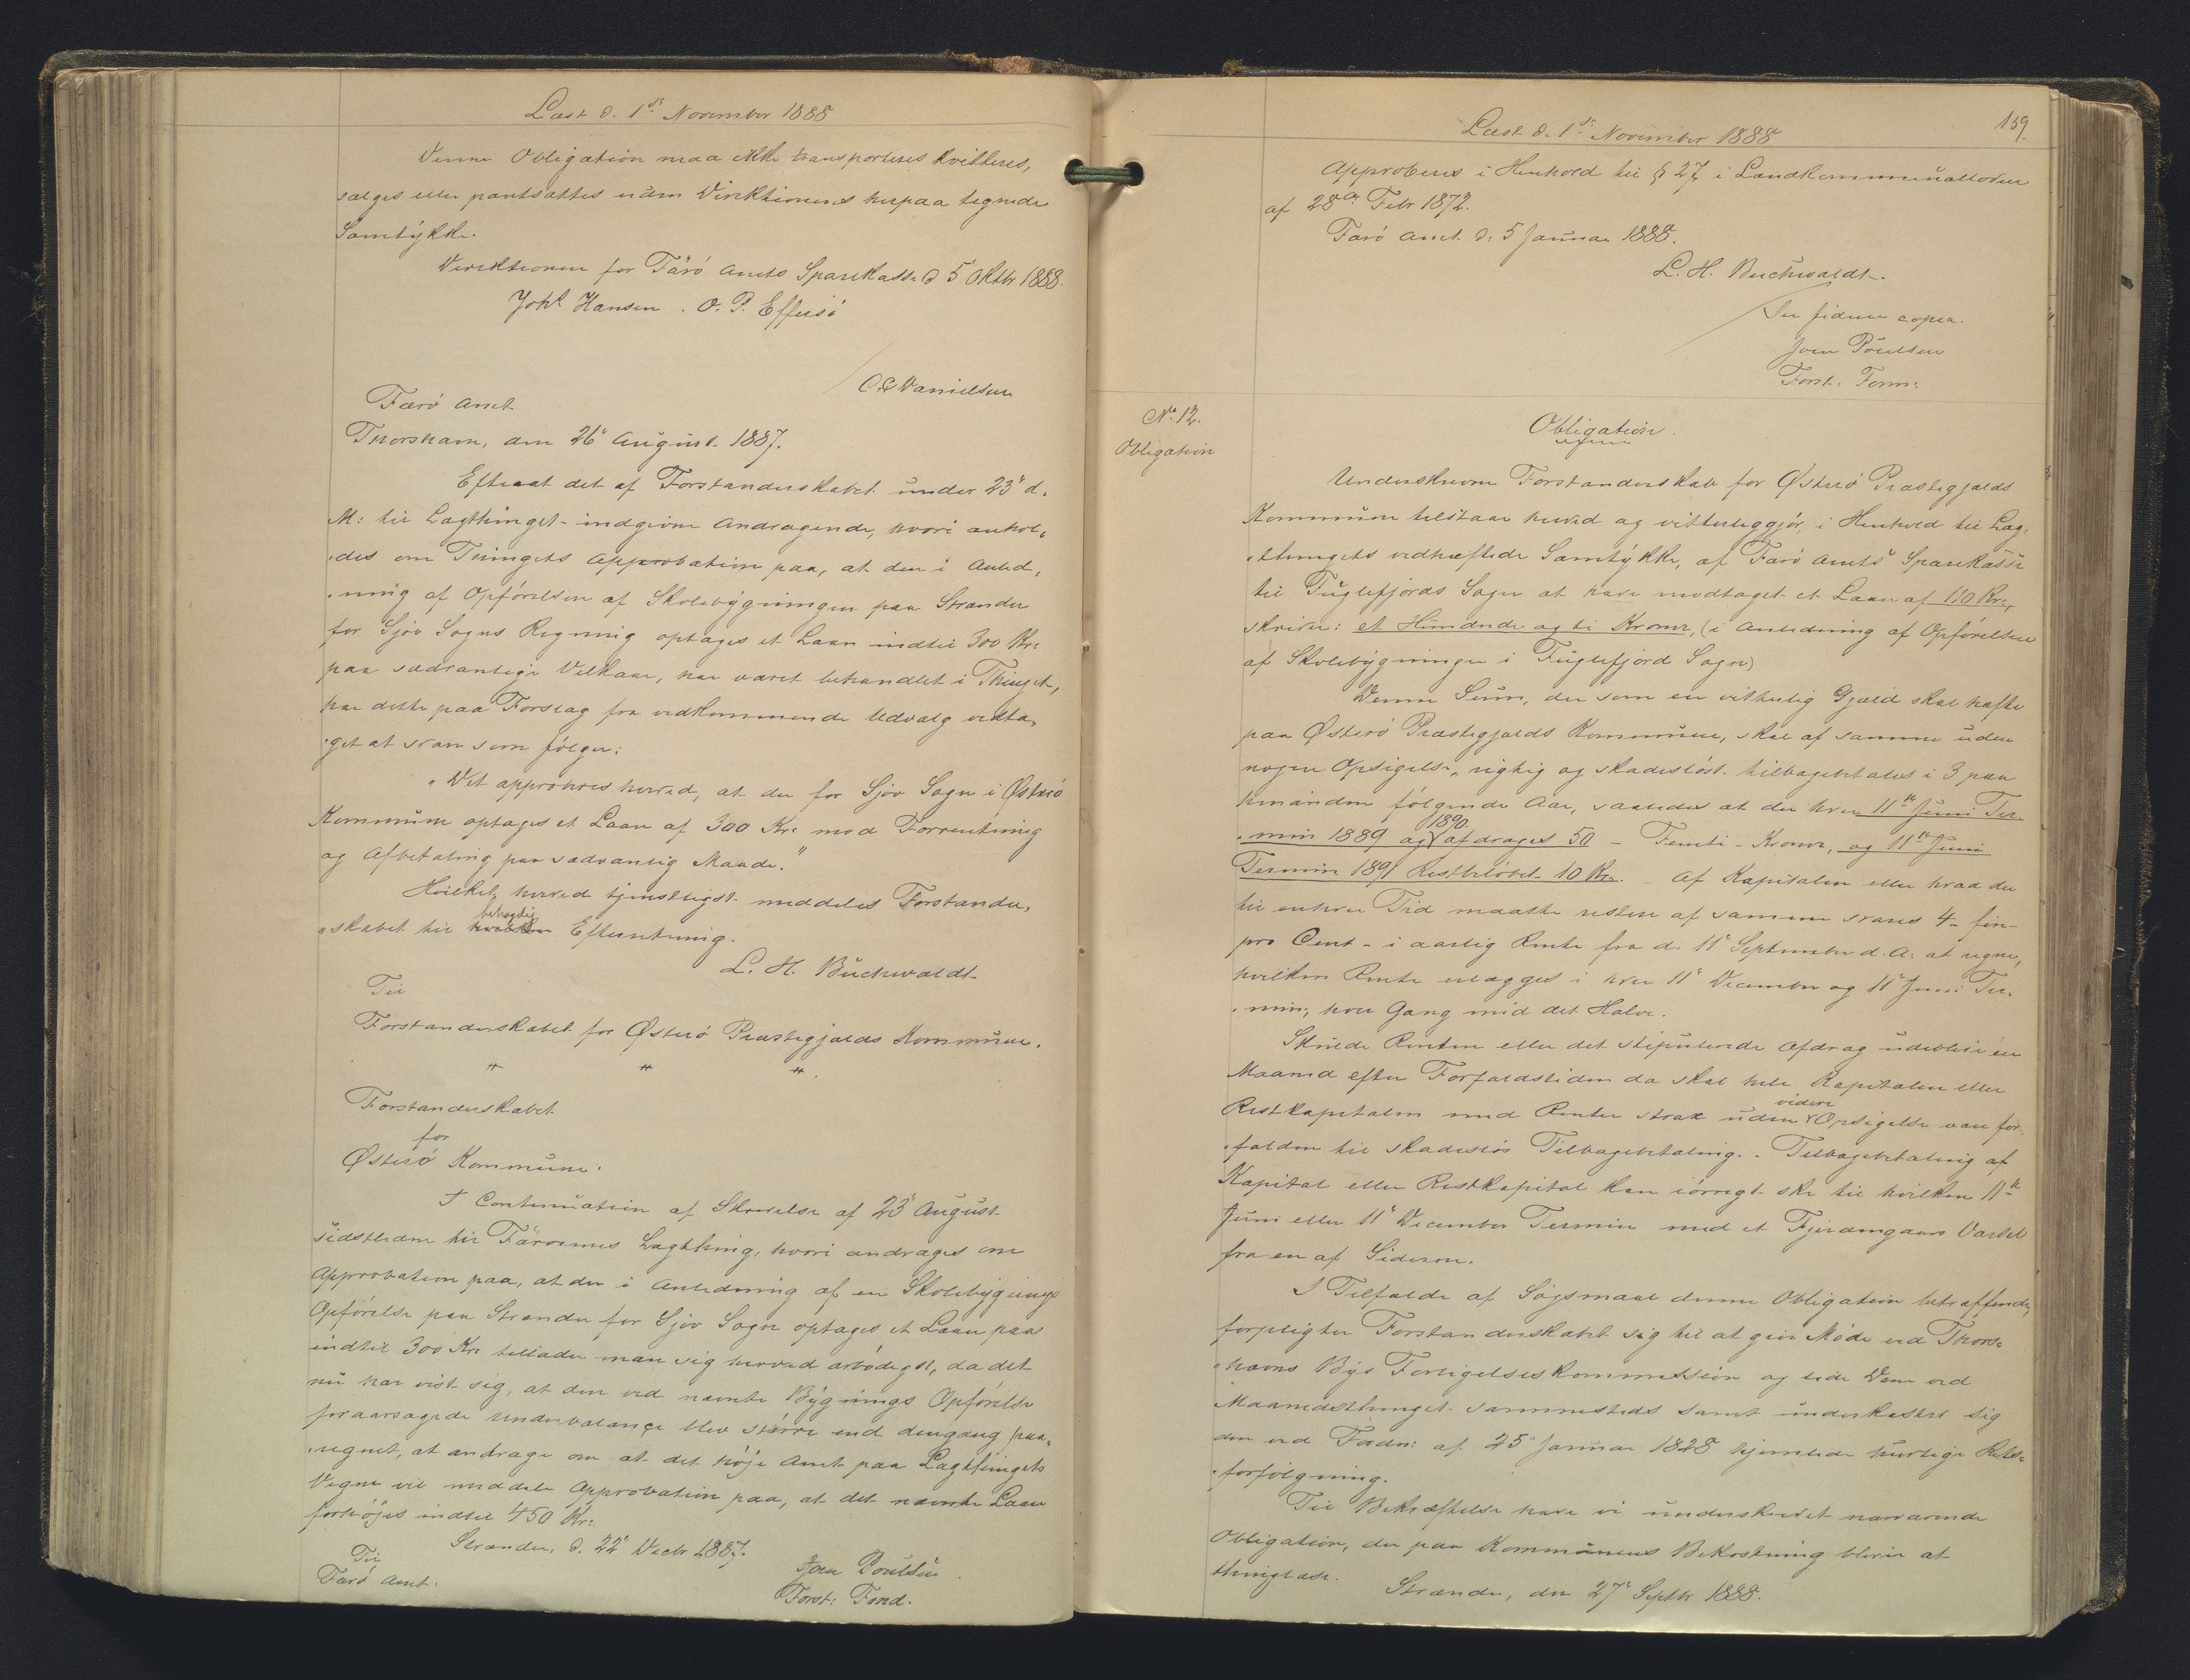 Læst d. 1ste November 1888
Denne Obligation maa ikke transporteres kvitteres,
sælges eller pantsættes uden Direktionens herpaa tegnede
Samtykke.
Direktionen for Færø Amts Sparekasse d 5' Oktbr 1888.
Johs Hansen. O. P. Effersö
O C Danielsen
Færö Amt
Thorshavn, den 26' August 1887.
Efterat det af Forstanderskabet under 23' d.
M: til Lagthinget indgivne Andragende, hvori anhol-
-des om Thingets Approbation paa, at der i Anled-
-ning af Opförelsen af Skolebygningen paa Strænder
for Sjov Sogns Regning optages et Laan indtil 300 Kr:
paa sædvanlige Vilkaar, har været behandlet i Thinget,
har dette paa Forslag fra vedkommende Udvalg vedta-
-get at svare som fölger:
"Det approberes herved, at der for Sjov Sogn i Österö
Kommune optages et Laan af 300 Kr: mod Forrentning
og Afbetaling paa sædvanlig Maade."
Hvilket herved tjenstligst meddeles Forstander-
behagelig
-skabet til Efterretning.
L. H. Buchwaldt
Til
Forstanderskabet for Österö Præstegjælds Kommune.
" " "
Forstanderskabet
for
Österö Kommune.
I Continuation af Skrivelse af 23' August
sidstleden til Färöernes Lagthing, hvori andrages om
Approbation paa, at der i Anledning af en Skolebygnings
Opförelse paa Strænder for Sjov Sogn optages et Laan paa
indtil 300 Kr: tillader man sig herved ærbödigst, da det
nu har vist sig, at den ved nævnte Bygnings Opförelse
foraarsagede Underbalance blev större end dengang paa-
-regnet, at andrage om at det höje Amt paa Lagthingets
Vegne vil meddele Approbation paa, at det nævnte Laan
forhöjes indtil 450 Kr:
Strænder, d. 22' Decbr 1887.
Til
Færö Amt.
Joen Poulsen.
Forst: Fmd.
159.
Læst d. 1ste November 1888
Approberes i Henhold til § 27 i Landkommunalloven
af 28de Febr 1872.
Færö Amt d: 5 Januar 1888.
L. H. Buchwaldt.
In fidem copiæ.
Joen Poulsen
Forst: Form:
No 12.
Obligation
Obligation.
Underskrevne Forstanderskab for Österö Præstegjælds
Kommune tilstaar herved og vitterliggjör, i Henhold til Lag-
-thingets vedhæftede Samtykke, af Færö Amts Sparekasse
til Fuglefjords Sogn at have modtaget et Laan af 110 Kr,
skriver: et Hundrede og ti Kroner, (i Anledning af Opförelsen
af Skolebygningen i Fuglefjord Sogn)
Denne Sum, der som en vitterlig Gjæld skal hæfte
paa Österö Præstegjælds Kommune, skal af samme uden
nogen Opsigelse, rigtig og skadeslöst tilbagebetales i 3 paa
hinanden fölgende Aar, saaledes at der hver 11te Juni Ter-
1890.
-min 1889 og afdrages 50 - Femti - Kroner, og 11te Juni
Termin 1891 Restbelöbet 10 Kr. - Af Kapitalen eller hvad der
til enhver Tid maatte restere af samme svares 4 - fire -
pro Cent - i aarlig Rente fra d. 11' September d. A: at regne,
hvilken Rente erlægges i hver 11' December og 11' Juni Ter-
-min, hver Gang med det Halve.
Skulde Renten eller det stipulerede Afdrag udeblive en
Maaned efter Forfaldstiden da skal hele Kapitalen eller
videre
Restkapitalen med Renter strax uden Opsigelse være for-
-falden til skadeslös Tilbagebetaling. - Tilbagebetaling af
Kapital eller Restkapital kan iövrigt ske til hvilken 11te
Juni eller 11' December Termin med et Fjerdingaars Varsel
fra en af Siderne.
I Tilfælde af Sögsmaal denne Obligation betræffende,
forpligter Forstanderskabet sig til at give Möde ved Thors-
-havns Byes Forligelseskommission og lide Dom ved
Maanedsthinget sammesteds samt underkaster sig
den ved Fordn: af 25' Januar 1828 hjemlede hurtige Rets-
-forfölgning.
Til Bekræftelse have vi underskrevet nærværende
Obligation, der paa Kommunens Bekostning bliver at
thinglæse.
Strænder, den 27' Septbr 1888.